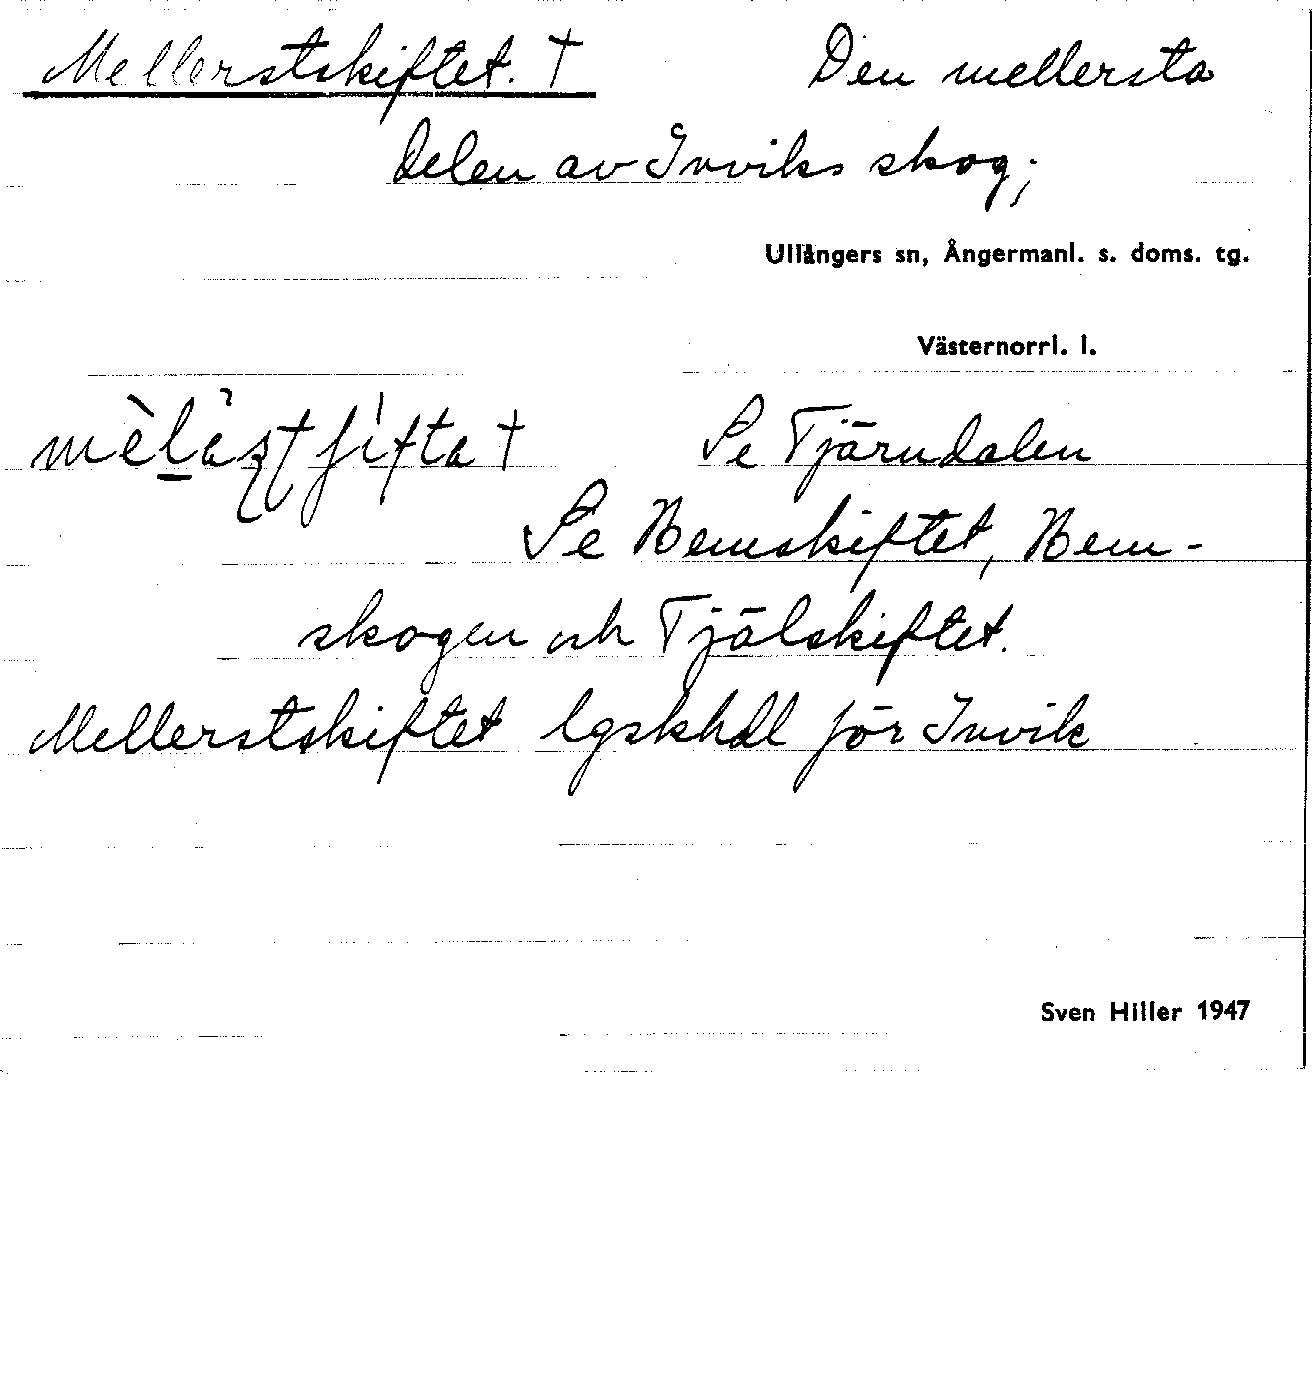 Mellerstskiftet. † Den mellersta
delen av Inviks skog;
Ullångers sn, Ångermanl. s. doms. tg.
Västernorrl. l.
† Se Tjärndalen
Se Hemskiftet, Hem-
skogen och Tjälskiftet.
Mellerstskiftet lgskhdl för Invik
Sven Hiller 1947